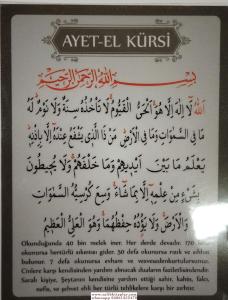 AYET-EL KÜRSİ
بِسْمِ اللهِ الرَّحْمٰنِ الرَّحِيمِ
اَللهُ لَا اِلٰهَ اِلَّا هُوَ اَلْحَيُّ الْقَيُّومُ لَا تَأْخُذُهُ سِنَةٌ وَلَا نَوْمٌ لَهُ
مَا فِي السَّمٰوَاتِ وَمَا فِي الْاَرْضِ مَنْ ذَا الَّذِي يَشْفَعُ عِنْدَهُ اِلَّا بِاِذْنِهِ
يَعْلَمُ مَا بَيْنَ اَيْدِيهِمْ وَمَا خَلْفَهُمْ وَلَا يُحِيطُونَ
بِشَيْءٍ مِنْ عِلْمِهِ اِلَّا بِمَا شَاءَ وَسِعَ كُرْسِيُّهُ السَّمٰوَاتِ
وَالْاَرْضَ وَلَا يَؤُدُهُ حِفْظُهُمَا وَهُوَ الْعَلِيُّ الْعَظِيمُ
Okunduğunda 40 bin melek iner. Her derde devadır. 170
okunursa hertürlü sıkıntısı gider. 50 defa okunursa rızık ve
bulunur. 7 defa okunursa evham ve vesveseden
Cinlere karşı kendisinden yardım alınacak duaların faziletlisindendir.
Sarah kişiye, Şeytanın kendisine yardım ettiği sahir, kahin, falcı,
nefis, ve şehvet ehli her türlü tehlikelere karşı bir zırhtır.